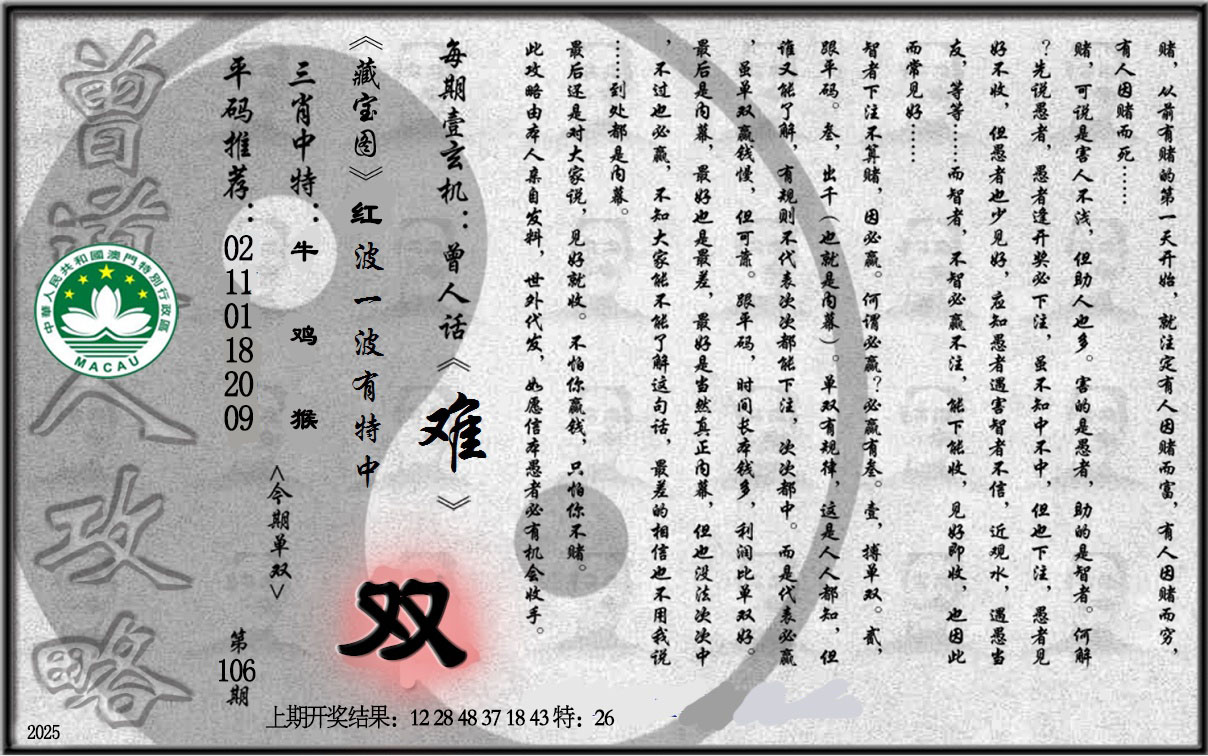 赌，从前有赌的第一天开始，就注定有人因赌而富，有人因赌而穷，
有人因赌而死……
赌，可说是害人不浅，但助人也多。害的是愚者，助的是智者。何解
？先说愚者，愚者逢开奖必下注，虽不知中不中，但也下注，愚者见
好不收，但愚者也少见好，应知愚者遇害智者不信，近观水，遇愚当
友，等等……而智者，不智必赢不注，能下能收，见好即收，也因此
而常见好……
智者下注不算赌，因必赢。何谓必赢？必赢有叁。壹，搏单双。贰，
跟平码。叁，出千（也就是内幕）。单双有规律，这是人人都知，但
谁又能了解，有规则不代表次次都能下注，次次都中。而是代表必赢
，虽单双赢钱慢，但可靠。跟平码，时间长本钱多，利润比单双好。
最后是内幕，最好也是最差，最好是当然真正内幕，但也没法次次中
，不过也必赢，不知大家能不能了解这句话，最差的相信也不用我说
……到处都是内幕。
最后还是对大家说，见好就收。不怕你赢钱，只怕你不赌。
此攻略由本人亲自发料，世外代发，如愿信本愚者必有机会收手。
每期壹玄机：曾人话《难》
《藏宝图》红波一波有特中
双
三肖中特：牛 鸡 猴
<今期单双>
平码推荐：02 11 01 18 20 09
第106期
曾道人攻略
中華人民共和國澳門特別行政區
MACAU
上期开奖结果：12 28 48 37 18 43 特：26
2025